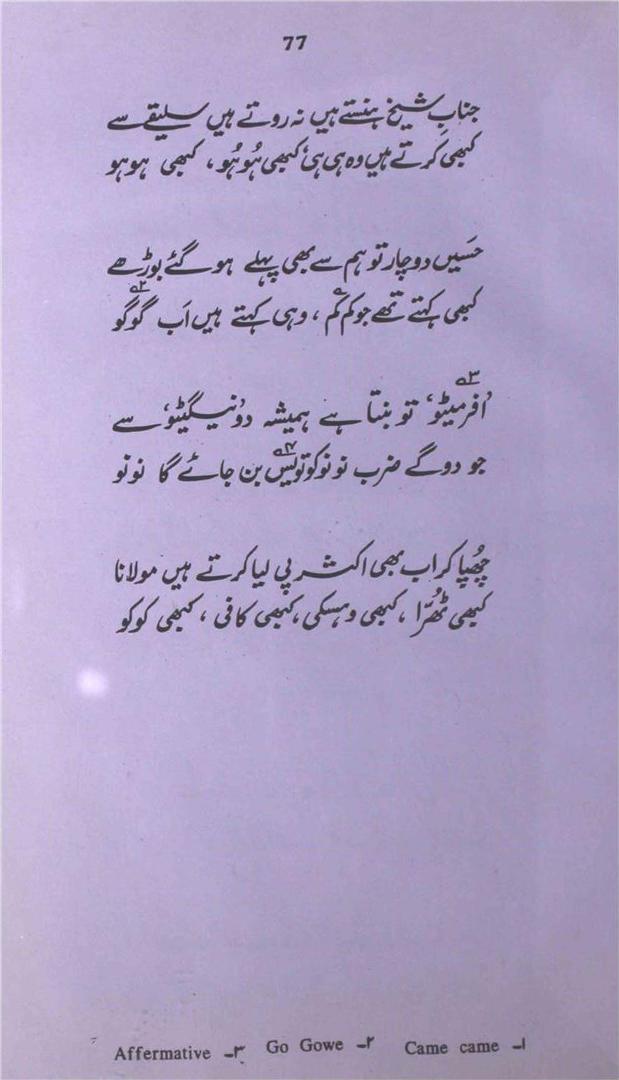 77
جنابِ شیخ ہنستے ہیں نہ روتے ہیں سلیقے سے
کبھی کرتے ہیں وہ ہی ہی، کبھی ہُو ہُو، کبھی ہو ہو
حَسیں دو چار تو ہم سے بھی پہلے ہو گئے بوڑھے
کبھی کہتے تھے جو کم کم؎۱، وہی کہتے ہیں اَب گو گو؎۲
’افرمیٹو‘؎۳ تو بنتا ہے ہمیشہ دو ’نیگیٹو‘ سے
جو دو گے ضرب نو نو کو تو یس؎۴ بن جائے گا نو نو
چھُپا کر اب بھی اکثر پی لیا کرتے ہیں مولانا
کبھی ٹھُرّا، کبھی وہسکی، کبھی کافی، کبھی کوکو
۱۔ Came came ۲۔ Go Gowe ۳۔ Affermative